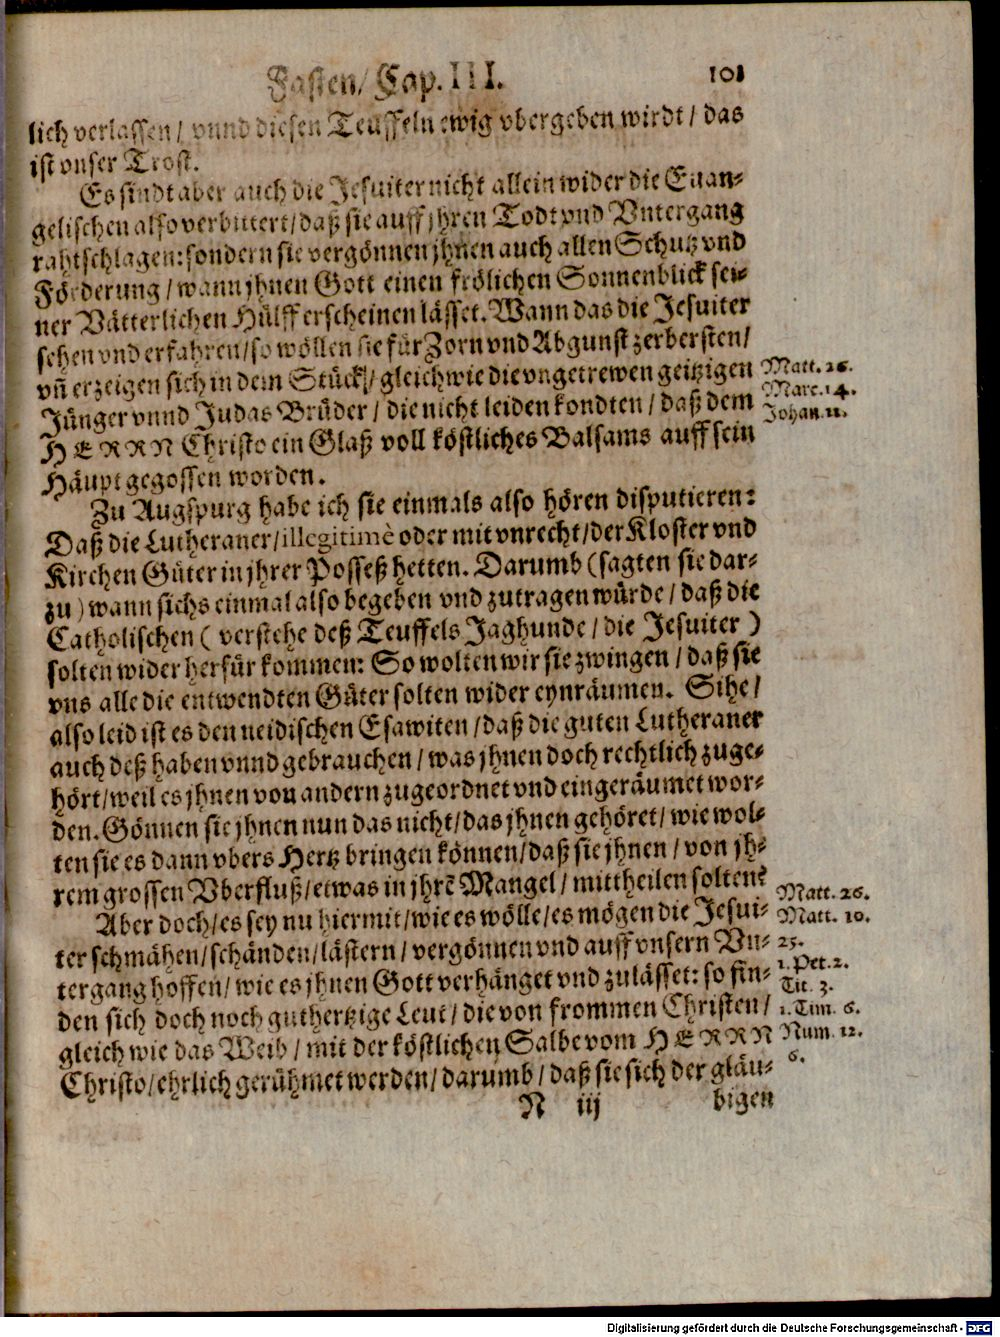 Fasten/ Cap. III. 101
lich verlassen/ vnnd diesen Teuffeln ewig vbergeben wirdt/ das
ist vnser Trost.
Es sindt aber auch die Jesuiter nicht allein wider die Euan-
gelischen also verbittert/ daß sie auff jhren Todt vnd Vntergang
rahtschlagen: sondern sie vergönnen jhnen auch allen Schutz vnd
Förderung/ wann jhnen Gott einen frölichen Sonnenblick sei-
ner Vätterlichen Hülff erscheinen lässet. Wann das die Jesuiter
sehen vnd erfahren/ so wöllen sie für Zorn vnd Abgunst zerbersten/
vñ erzeigen sich in dem Stück/ gleich wie die vngetrewen geitzigen
Jünger vnnd Judas Brüder/ die nicht leiden kondten/ daß dem
HERRN Christo ein Glaß voll köstliches Balsams auff sein
Häupt gegossen worden.
Matt. 26.
Marc. 14.
Johan. 12.
Zu Augspurg habe ich sie einmals also hören disputieren:
Daß die Lutheraner/ illegitimè oder mit vnrecht/ der Kloster vnd
Kirchen Güter in jhrer Posseß hetten. Darumb (sagten sie dar-
zu) wann sichs einmal also begeben vnd zutragen würde/ daß die
Catholischen ( verstehe deß Teuffels Jaghunde/ die Jesuiter )
solten wider herfür kommen: So wolten wir sie zwingen/ daß sie
vns alle die entwendten Güter solten wider eynräumen. Sihe/
also leid ist es den neidischen Esawiten/ daß die guten Lutheraner
auch deß haben vnnd gebrauchen/ was jhnen doch rechtlich zuge-
hört/ weil es jhnen von andern zugeordnet vnd eingeräumet wor-
den. Gönnen sie jhnen nun das nicht/ das jhnen gehöret/ wie wol-
ten sie es dann vbers Hertz bringen können/ daß sie jhnen/ von jh-
rem grossen Vberfluß/ etwas in jhrẽ Mangel/ mittheilen solten?
Aber doch/ es sey nu hiermit/ wie es wölle/ es mögen die Jesui-
ter schmähen/ schänden/ lästern/ vergönnen vnd auff vnsern Vn-
tergang hoffen/ wie es jhnen Gott verhänget vnd zulässet: so fin-
den sich doch noch guthertzige Leut/ die von frommen Christen/
gleich wie das Weib/ mit der köstlichen Salbe vom HERRN
Christo/ ehrlich gerühmet werden/ darumb/ daß sie sich der gläu-
Matt. 26.
Matt. 10.
25.
1. Pet. 2.
Tit. 3.
1. Tim. 6.
Num. 12.
6.
N iij bigen
Digitalisierung gefördert durch die Deutsche Forschungsgemeinschaft - DFG